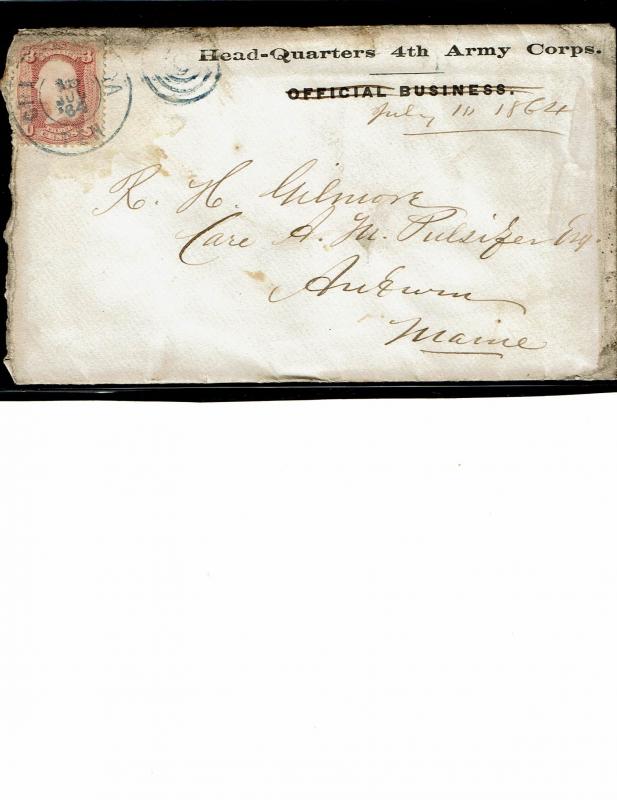 Head-Quarters 4th Army Corps.
OFFICIAL BUSINESS.
July 10 1864
R. H. Gilmore
Care A. M. Pulsifer Esq.
Auburn
Maine
3 3
64